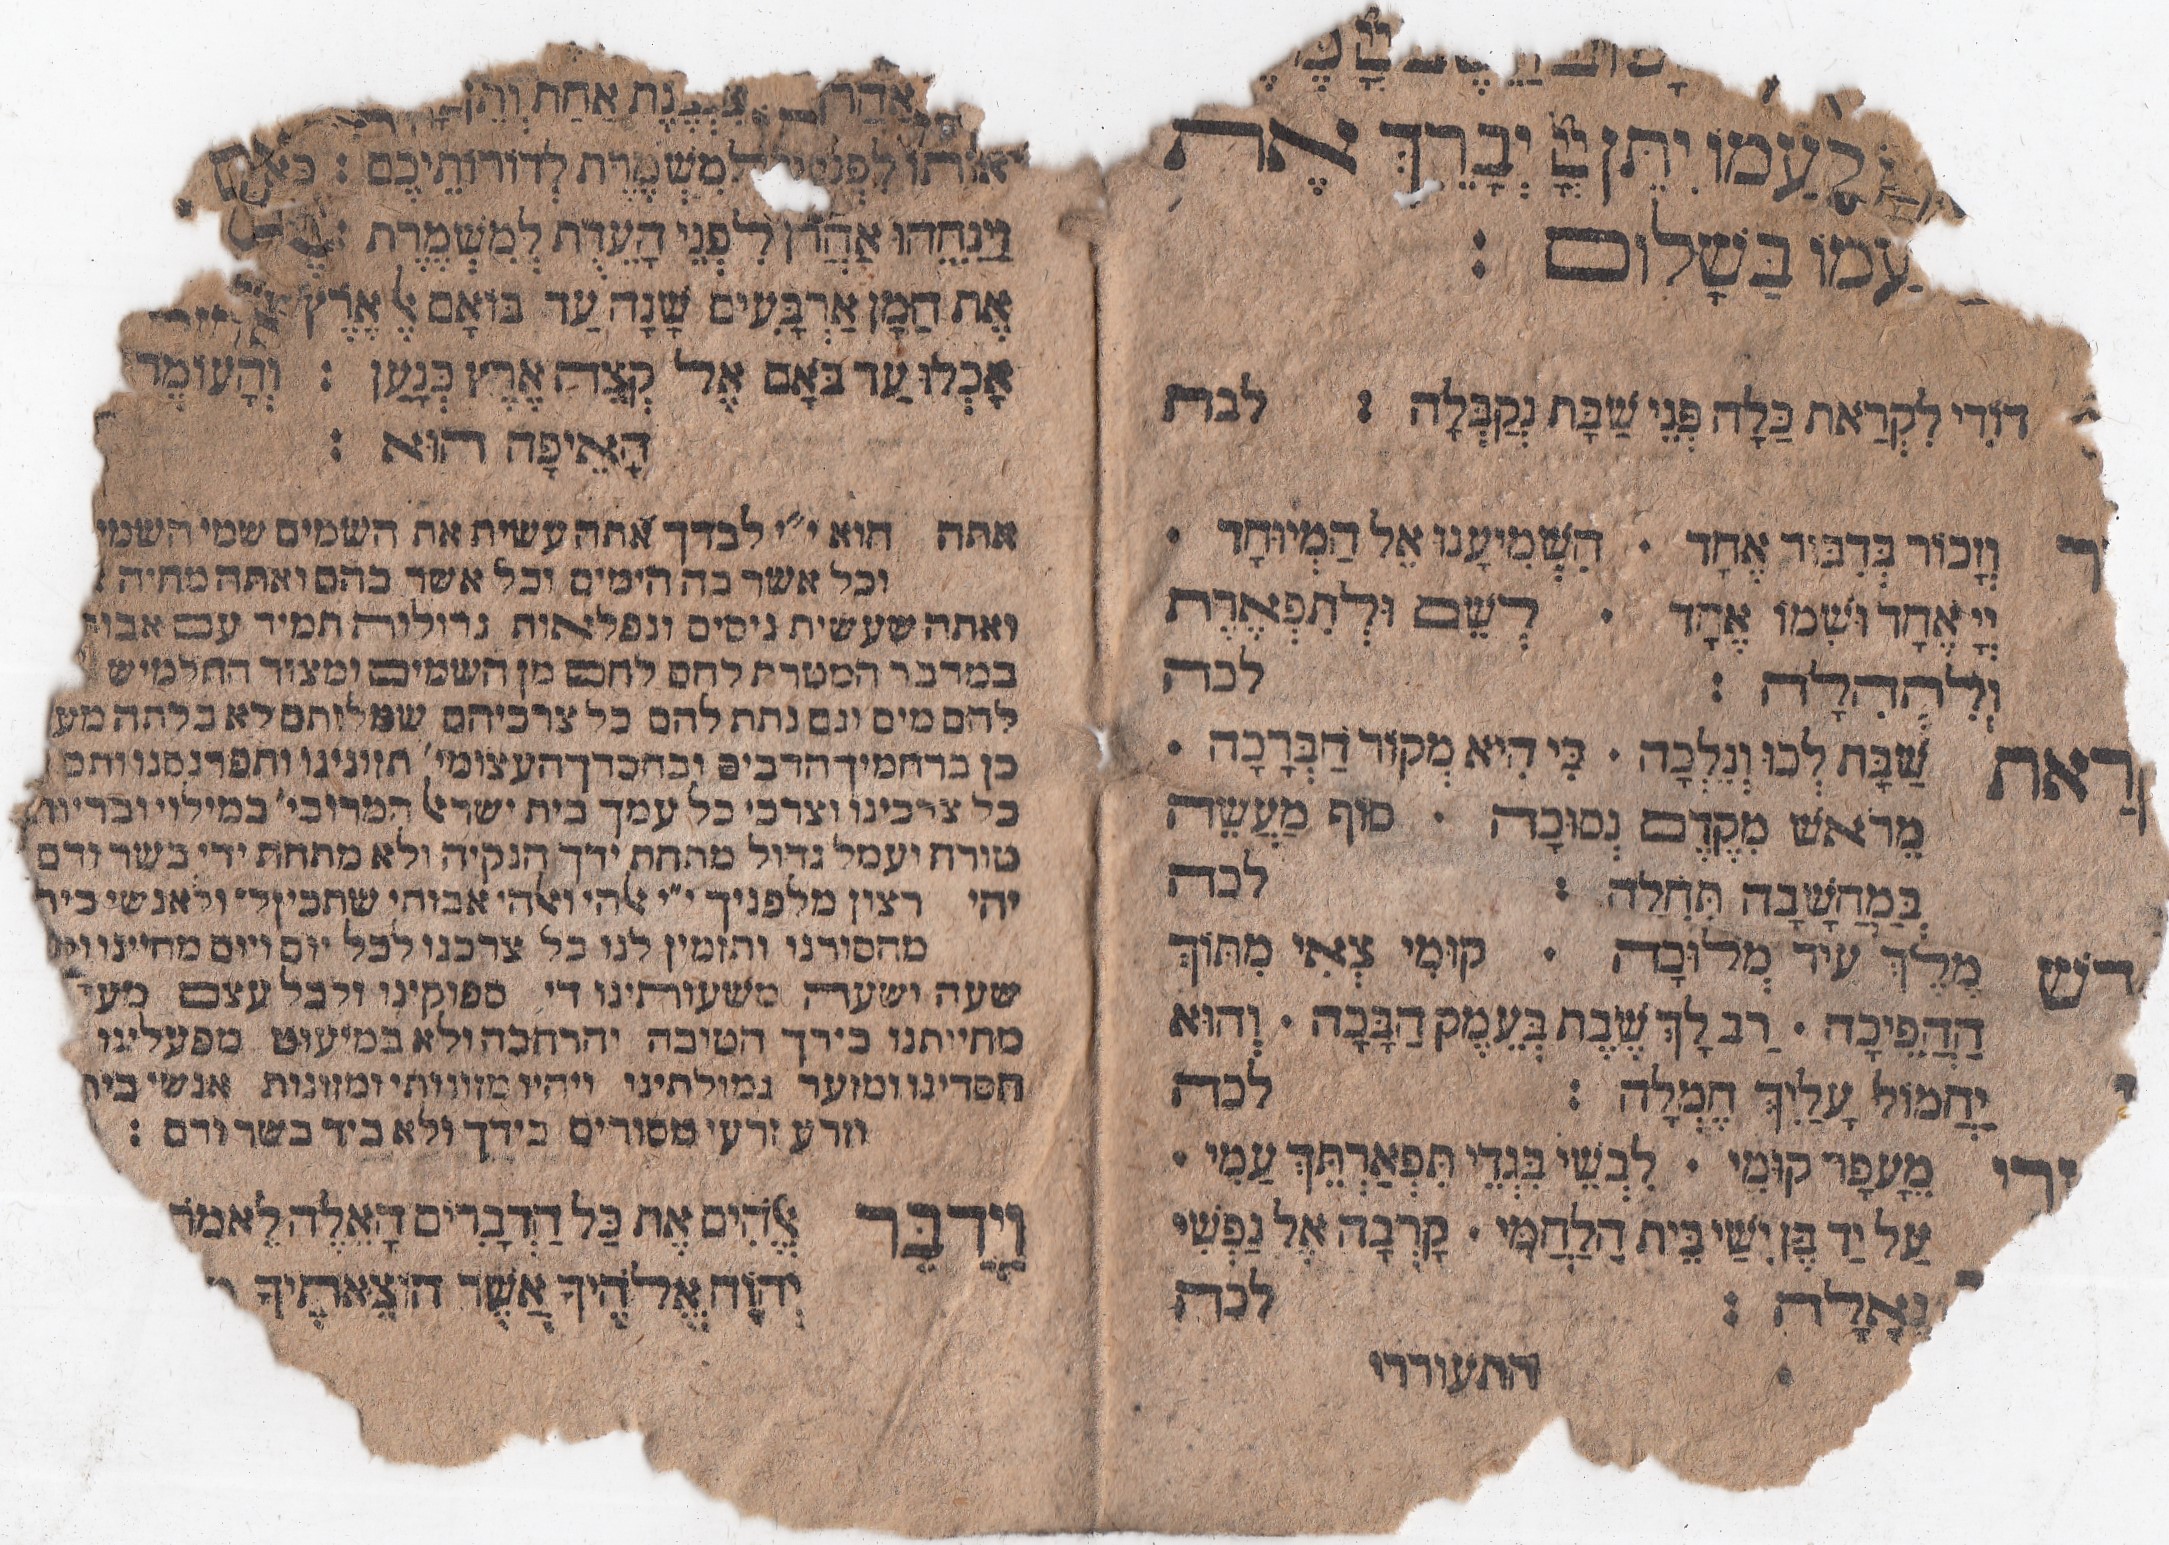 לְעַמּוֹ יִתֵּן יְיָ יְבָרֵךְ אֶת
עַמּוֹ בַּשָׁלוֹם :
דוֹדִי לִקְרַאת כַּלָה פְּנֵי שַׁבָּת נְקַבְּלָה : לכה
וְזָכוֹר בְּדִבּוּר אֶחָד · הִשְׁמִיעָנוּ אֵל הַמְיוּחָד ·
יְיָ אֶחָד וּשְׁמוֹ אֶחָד · לְשֵׁם וּלְתִפְאֶרֶת
וְלִתְהִלָה : לכה
קְרַאת שַׁבָּת לְכוּ וְנֵלְכָה · כִּי הִיא מְקוֹר הַבְּרָכָה ·
מֵרֹאשׁ מִקֶדֶם נְסוּכָה · סוֹף מַעֲשֶׂה
בְּמַחֲשָׁבָה תְּחִלָה : לכה
דשׁ מֶלֶךְ עִיר מְלוּכָה · קוּמִי צְאִי מִתּוֹךְ
הַהֲפֵיכָה · רַב לָךְ שֶׁבֶת בְּעֵמֶק הַבָּכָה · וְהוּא
יַחֲמוֹל עָלַיִךְ חֶמְלָה : לכה
מֵעָפָר קוּמִי · לִבְשִׁי בִּגְדֵי תִּפְאַרְתֵּךְ עַמִי ·
עַל יַד בֶּן יִשַׁי בֵּית הַלַחֲמִי · קָרְבָה אֶל נַפְשִׁי
גְאָלָה : לכה
התעוררי
אַהֲרֹן צִנְצֶנֶת אַחַת וְתֶן
אוֹתוֹ לִפְנֵי לְמִשְׁמֶרֶת לְדוֹרוֹתֵיכֶם : כַּאֲשֶׁר
וַיַנִחֵהוּ אַהֲרֹן לִפְנֵי הָעֵדֻת לְמִשְׁמֶרֶת :
אֶת הַמָן אַרְבָּעִים שָׁנָה עַד בּוֹאָם אֶל אֶרֶץ
אָכְלוּ עַד בֹּאָם אֶל קְצֵה אֶרֶץ כְּנָעַן : וְהָעוֹמֶר
הָאֵיפָה הוּא :
אתה הוא י״י לבדך אתה עשית את השמים שמי השמי
וכל אשר בה הימים וכל אשר בהם ואתה מחיה
ואתה שעשית ניסים ונפלאות גדולות תמיד עם אבות
במדבר המטרת להם לחם מן השמים ומצור החלמיש
להם מים וגם נתת להם כל צרכיהם שמלותם לא בלתה מע
כן ברחמיך הרבים ובחסדך העצומי׳ תזונינו ותפרנסנו ותכ
כל צרכינו וצרכי כל עמך בית ישראל המרובי׳ במילוי ובריוח
טורח ועמל גדול מתחת ידך הנקיה ולא מתחת ידי בשר ודם
יהי רצון מלפניך י״י אלהי ואלהי אבותי שתכין לי ולאנשי בית
מחסורנו ותזמין לנו כל צרכנו לכל יום ויום מחיינו
שעה ושעה משעותינו די ספוקינו ולכל עצם מעצ
מחייתנו בידך הטובה והרחבה ולא במיעוט מפעלינו
חסדינו ומזער גמולתינו ויהיו מזונותי ומזונות אנשי בית
וזרע זרעי מסורים בידך ולא ביד בשר ודם :
וַיְדַבֵּר אֱלֹהִים אֶת כָּל הַדְבָרִים הָאֵלֶה לֵאמֹר
יְהוָֹה אֱלֹהֶיךָ אֲשֶׁר הוֹצֵאתִיךָ